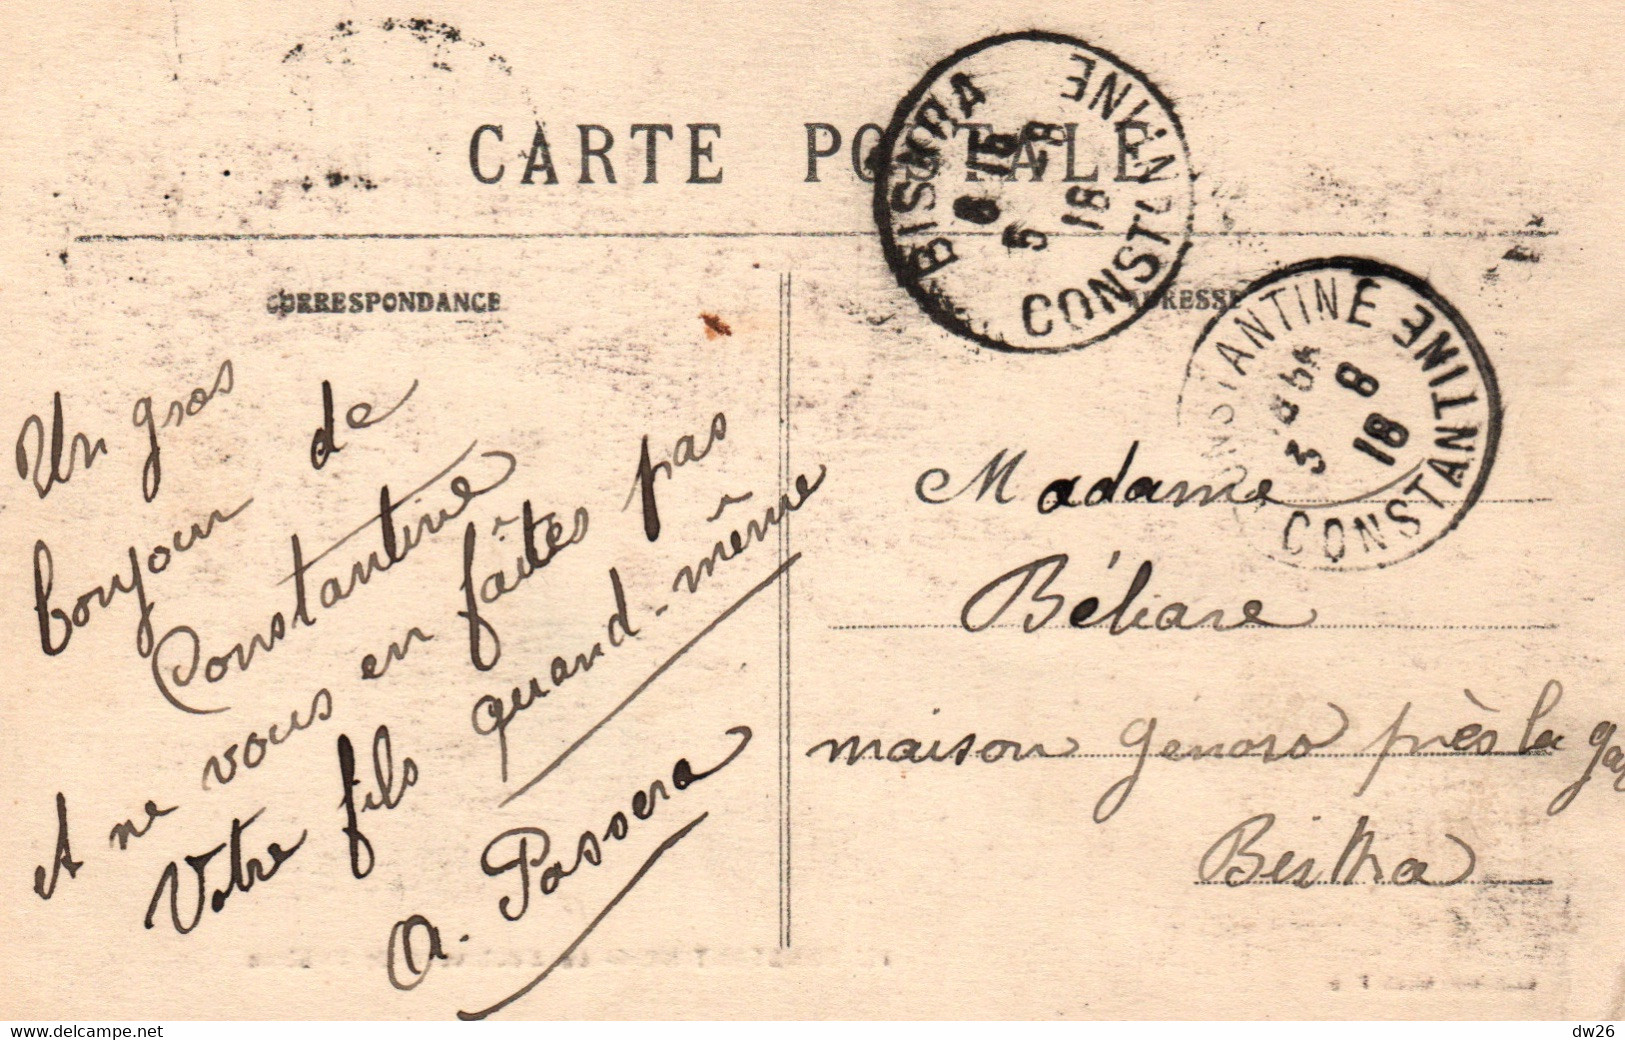 CARTE POSTALE
CORRESPONDANCE
ADRESSE
BISKRA
8 15
5 -8
18
CONSTANTINE
CONSTANTINE
3 8
18
CONSTANTINE
Un gros
bonjour de
Constantine
et ne vous en faîtes pas
Votre fils quand-même
A. Passera
Madame
Béliare
maison Genoro près la gar
Biskra
delcampe.net
dw26